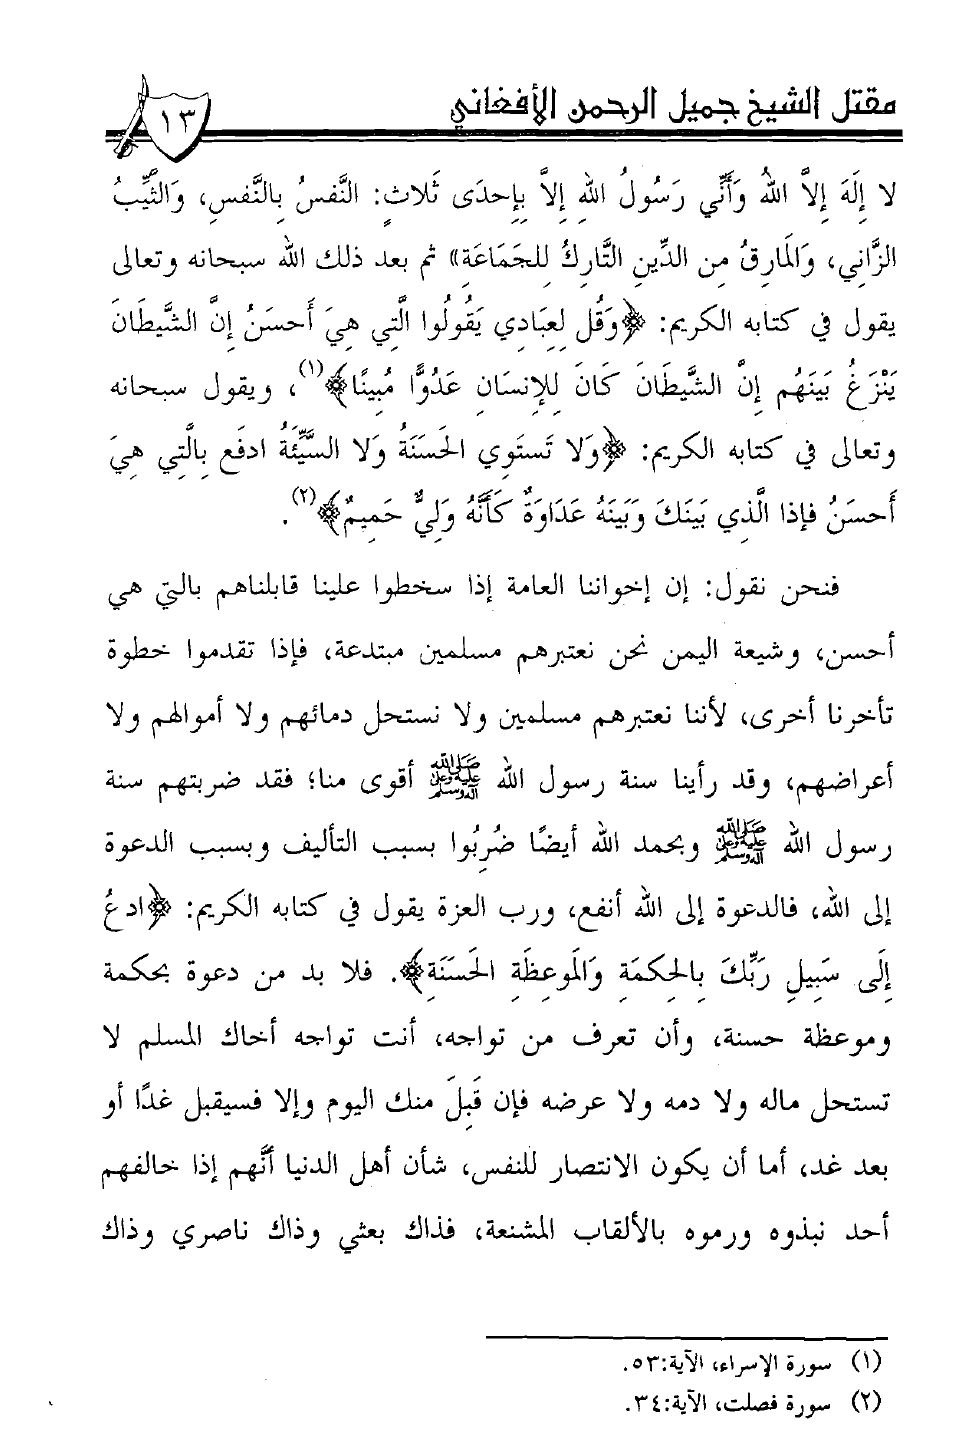 مقتل الشيخ جميل الرحمن الأفغاني
١٣
لا إِلَهَ إِلاَّ اللهُ وَأَنِّي رَسُولُ اللهِ إِلاَّ بِإِحدَى ثَلاثٍ: النَّفسُ بِالنَّفسِ، وَالثَّيِّبُ
الزَّانِي، وَالمَارِقُ مِن الدِّينِ التَّارِكُ لِلجَمَاعَةِ» ثم بعد ذلك الله سبحانه وتعالى
يقول في كتابه الكريم: ﴿وَقُل لِعِبَادِي يَقُولُوا الَّتِي هِيَ أَحسَنُ إِنَّ الشَّيطَانَ
يَنْزَغُ بَينَهُم إِنَّ الشَّيطَانَ كَانَ لِلإِنسَانِ عَدُوًّا مُبِينًا﴾(١)، ويقول سبحانه
وتعالى في كتابه الكريم: ﴿وَلا تَستَوِي الحَسَنَةُ وَلا السَّيِّئَةُ ادفَع بِالَّتِي هِيَ
أَحسَنُ فإذا الَّذِي بَينَكَ وَبَينَهُ عَدَاوَةٌ كَأَنَّهُ وَلِيٌّ حَمِيمٌ﴾(٢).
فنحن نقول: إن إخواننا العامة إذا سخطوا علينا قابلناهم بالتي هي
أحسن، وشيعة اليمن نحن نعتبرهم مسلمين مبتدعة، فإذا تقدموا خطوة
تأخرنا أخرى، لأننا نعتبرهم مسلمين ولا نستحل دمائهم ولا أموالهم ولا
أعراضهم، وقد رأينا سنة رسول الله ﷺ أقوى منا؛ فقد ضربتهم سنة
رسول الله ﷺ وبحمد الله أيضًا ضُرِبُوا بسبب التأليف وبسبب الدعوة
إلى الله، فالدعوة إلى الله أنفع، ورب العزة يقول في كتابه الكريم: ﴿ادعُ
إِلَى سَبِيلِ رَبِّكَ بِالحِكمَةِ وَالمَوعِظَةِ الحَسَنَةِ﴾. فلا بد من دعوة بحكمة
وموعظة حسنة، وأن تعرف من تواجه، أنت تواجه أخاك المسلم لا
تستحل ماله ولا دمه ولا عرضه فإن قَبِلَ منك اليوم وإلا فسيقبل غدًا أو
بعد غد، أما أن يكون الانتصار للنفس، شأن أهل الدنيا أنَّهم إذا خالفهم
أحد نبذوه ورموه بالألقاب المشنعة، فذاك بعثي وذاك ناصري وذاك
(١) سورة الإسراء، الآية:٥٣.
(٢) سورة فصلت، الآية:٣٤.